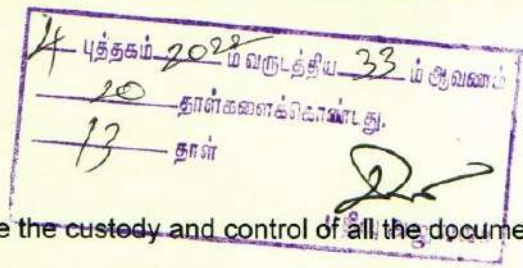 4 புத்தகம் 2022 ம் வருடத்திய 33 ம் ஆவணம்
20 தாள்களைக்கொண்டது.
13 தாள்
e the custody and control of all the docume